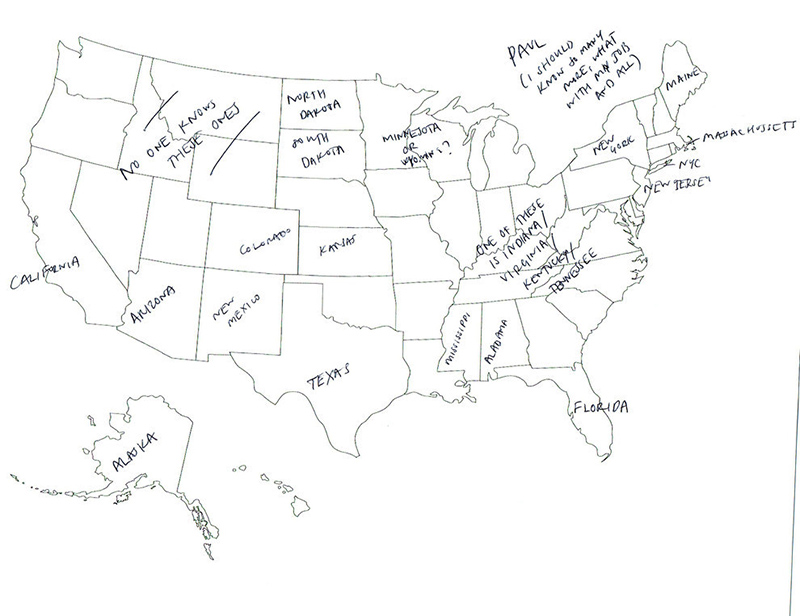 PAUL
(I SHOULD
KNOW SO MANY
MORE, WHAT
WITH MY JOB
AND ALL)
MAINE
NORTH
DAKOTA
NO ONE KNOWS
THESE ONES
SOUTH
DAKOTA
MINNESOTA
OR
NEW
YORK
MASSACHUSSETS
NYC
NEW JERSEY
COLORADO
KANSAS
ONE OF THESE
IS INDIANA/
VIRGINIA/
KENTUCKY/
TENNESSEE
CALIFORNIA
ARIZONA
NEW
MEXICO
MISSISSIPPI
ALABAMA
TEXAS
FLORIDA
ALASKA